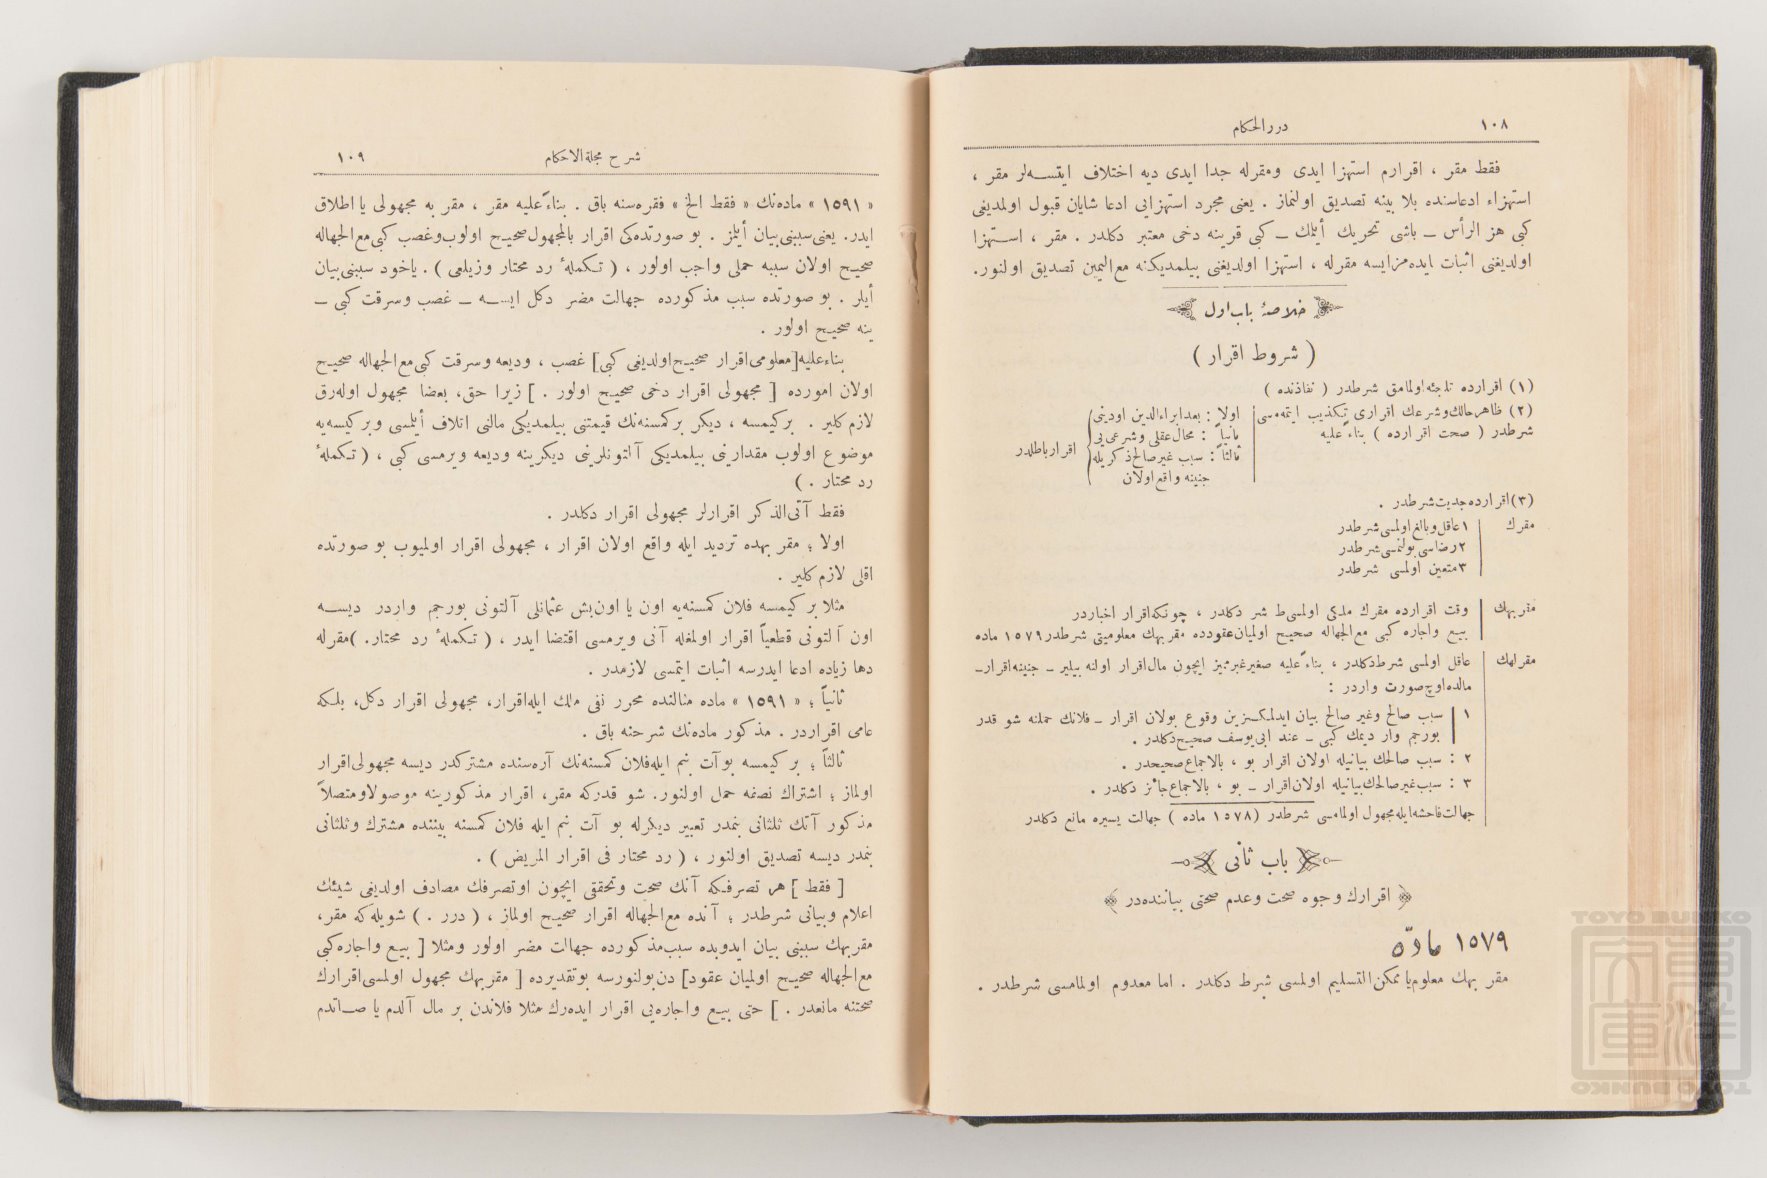 ١٠٨
درر الحكام
فقط مقر ، اقرارم استهزا ايدى ومقرله جدا ايدى ديه اختلاف ايتسه‌لر مقر ،
استهزاء ادعاسنده بلا بينه تصديق اولنماز . يعنى مجرد استهزايى ادعا شايان قبول اولمديغى
كبى هز الرأس ــ باشى تحريك أيلمك ــ كبى قرينه دخى معتبر دكلدر . مقر ، استهزا
اولديغنى اثبات ايده‌مزايسه مقرله ، استهزا اولديغنى بيلمديكنه مع اليمين تصديق اولنور.
خلاصهٔ باب اول
( شروط اقرار )
(١) اقرارده تلجئه اولمامق شرطدر ( نفاذنده )
(٢) ظاهر حالك وشرعك اقرارى تكذيب ايتمه‌مسى
شرطدر ( صحت اقرارده ) بناءً عليه
اولا : بعد ابراءالدين اودينى
ثانياً : محال عقلى وشرعى‌يى
ثالثاً : سبب غير صالح ذكريله
جنينه واقع اولان
اقرار باطلدر
(٣) اقرارده جديت شرطدر .
مقرك
١ عاقل وبالغ اولمسى شرطدر
٢ رضاسى بولنمسى شرطدر
٣ متعين اولمسى شرطدر
مقربهك
وقت اقرارده مقرك ملكى اولمسى‌ط شر دكلدر ، چونكه اقرار اخباردر
بيع واجاره كبى مع الجهاله صحيح اولميان عقودده مقربهك معلوميتى شرطدر ١٥٧٩ ماده
مقرلهك
عاقل اولمسى شرط دكلدر ، بناءً عليه صغير غير مميز ايچون مال اقرار اولنه بيلير ــ جنينه اقرار ــ
مالده اوچ صورت واردر :
١ سبب صالح وغير صالح بيان ايدلمكسزين وقوع بولان اقرار ــ فلانك حملنه شو قدر
بورجم وار ديمك كبى ــ عند ابى يوسف صحيح دكلدر .
٢ : سبب صالحك بيانيله اولان اقرار بو ، بالاجماع صحيحدر .
٣ : سبب غير صالحك بيانيله اولان اقرار ــ بو ، بالاجماع جائز دكلدر .
جهالت فاحشه ايله مجهول اولمامسى شرطدر (١٥٧٨ ماده ) جهالت يسيره مانع دكلدر
باب ثانى
اقرارك وجوه صحت وعدم صحتى بياننده‌در
١٥٧٩ مادّه
مقر بهك معلوم يا ممكن التسليم اولمسى شرط دكلدر . اما معدوم اولمامسى شرطدر .
شرح مجلة الاحكام
١٠٩
« ١٥٩١ » ماده‌نك « فقط الخ » فقره‌سنه باق . بناءً عليه مقر ، مقر به مجهولى يا اطلاق
ايدر. يعنى سببنى بيان أيلمز . بو صورتده‌كى اقرار بالمجهول صحيح اولوب وغصب كبى مع الجهاله
صحيح اولان سببه حملى واجب اولور ، ( تكملهٔ رد محتار وزيلعى ) . ياخود سببنى بيان
أيلر . بو صورتده سبب مذكورده جهالت مضر دكل ايسه ــ غصب وسرقت كبى ــ
ينه صحيح اولور .
بناء عليه [معلومى اقرار صحيح اولديغى كبى] غصب ، وديعه وسرقت كبى مع الجهاله صحيح
اولان امورده [ مجهولى اقرار دخى صحيح اولور . ] زيرا حق، بعضا مجهول اوله‌رق
لازم كلير . بر كيمسه ، ديكر بر كمسنه‌نك قيمتنى بيلمديكى مالنى اتلاف أيلمسى وبر كيمسه‌يه
موضوع اولوب مقدارينى بيلمديكى آلتونلرينى ديكرينه وديعه ويرمسى كبى ، ( تكملهٔ
رد محتار . )
فقط آتى الذكر اقرارلر مجهولى اقرار دكلدر .
اولا ؛ مقر بهده ترديد ايله واقع اولان اقرار ، مجهولى اقرار اولميوب بو صورتده
اقلى لازم كلير .
مثلا بر كيمسه فلان كمسنه‌يه اون يا اون‌بش عثمانلى آلتونى بورجم واردر ديسه
اون آلتونى قطعياً اقرار اولمغله آنى ويرمسى اقتضا ايدر ، ( تكملهٔ رد محتار. )مقرله
دها زياده ادعا ايدرسه اثبات ايتمسى لازمدر .
ثانياً ؛ « ١٥٩١ » ماده مثالنده محرر نفى ملك ايله اقرار، مجهولى اقرار دكل، بلكه
عامى اقراردر . مذكور ماده‌نك شرحنه باق .
ثالثاً ؛ بر كيمسه بو آت بنم ايله فلان كمسنه‌نك آره‌سنده مشتركدر ديسه مجهولى اقرار
اولماز ؛ اشتراك نصفه حمل اولنور. شو قدركه مقر، اقرار مذكورينه موصولا ومتصلاً
مذكور آتك ثلثانى بنمدر تعبير ديكرله بو آت بنم ايله فلان كمسنه بيننده مشترك وثلثانى
بنمدر ديسه تصديق اولنور ، ( رد محتار فى اقرار المريض ) .
[ فقط ] هر تصرفكه آنك صحت وتحققى ايچون اوتصرفك مصادف اولديغى شيئك
اعلام وبيانى شرطدر ؛ آنده مع الجهاله اقرار صحيح اولماز ، ( درر . ) شويله‌كه مقر،
مقربهك سببنى بيان ايدوبده سبب مذكورده جهالت مضر اولور ومثلا [ بيع واجاره كبى
مع الجهاله صحيح اولميان عقود] دن بولنورسه بو تقديرده [ مقربهك مجهول اولمسى اقرارك
صحتنه مانعدر . ] حتى بيع واجاره‌يى اقرار ايده‌رك مثلا فلاندن بر مال آلدم يا صاتدم
TOYO BUNKO
TOYO BUNKO